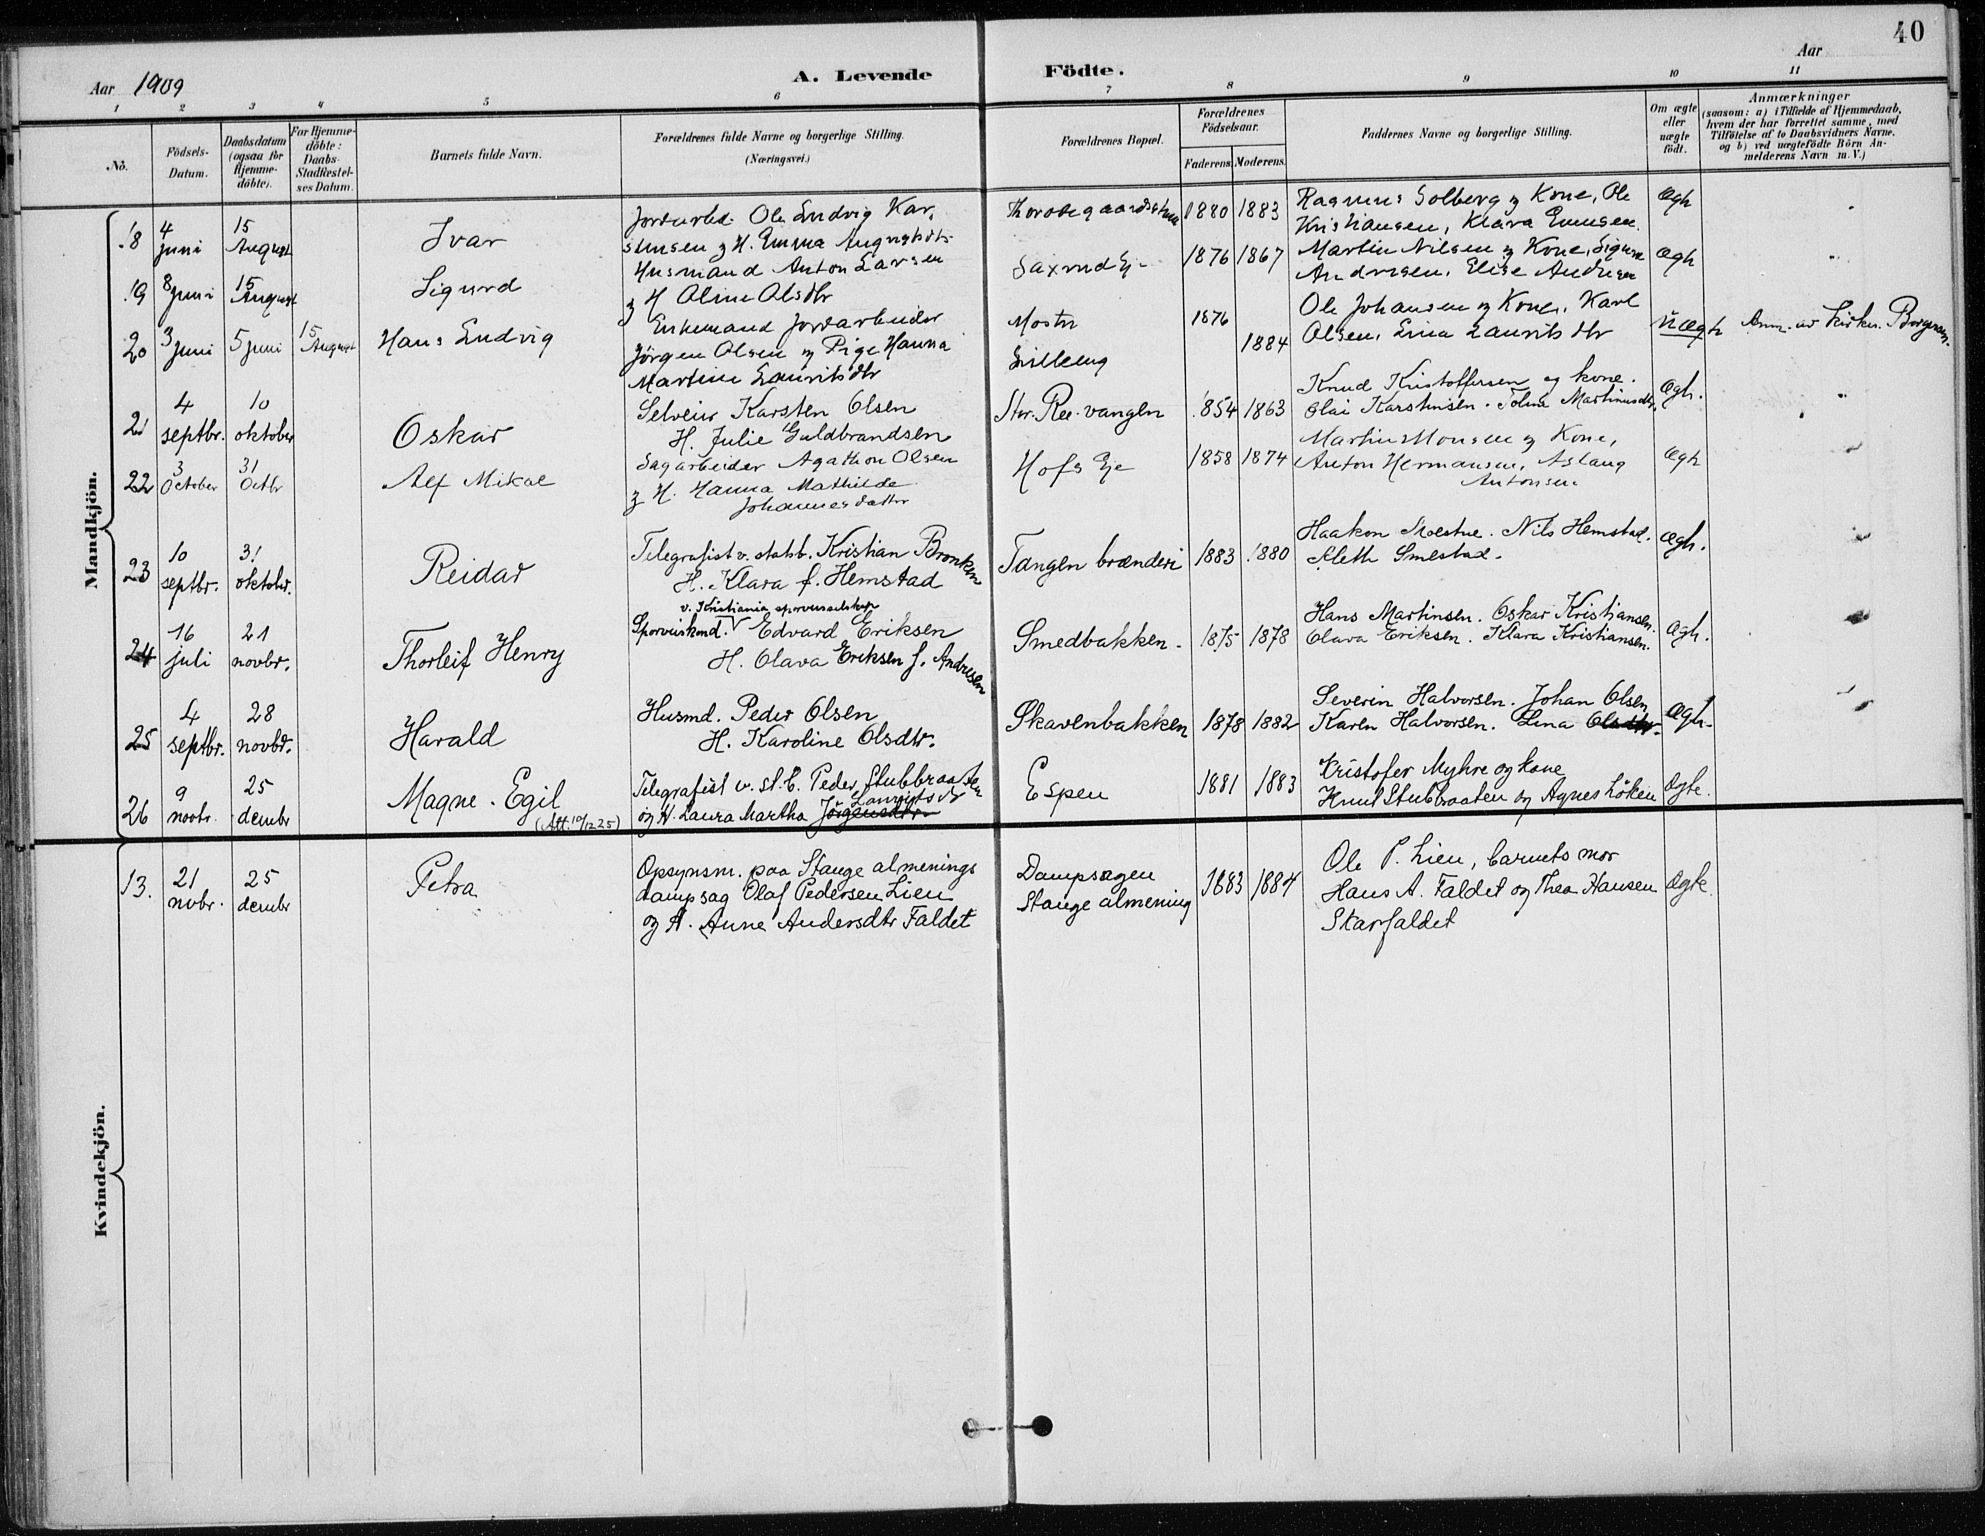 40
Aar 1909
A. Levende Födte.
Aar
1 2 3 4 5 6 7 8 9 10 11
No.
Födsels-Datum.
Daabsdatum (ogsaa for Hjemme-döbte).
For Hjemme-döbte: Daabs-Stadfestel-ses Datum.
Barnets fulde Navn.
Forældrenes fulde Navne og borgerlige Stilling.
(Næringsvei.)
Forældrenes Bopæl.
Forældrenes Födselsaar.
Faderens Moderens
Faddernes Navne og borgerlige Stilling.
Om ægte eller uægte födt.
Anmærkninger
(saasom: a) i Tilfælde af Hjemmedaab,
hvem der har forrettet samme, med
Tilföielse af to Daabsvidners Navne,
og b) ved uægtefödte Börn An-
melderens Navn m. V.)
Mandkjön.
18 4 juni 15 August Ivar
Jordarbd. Ole Ludvig Kar-
stensen og H. Emma Augustsdtr
1880 1883
Ragnus Solberg og Kone, Ole
Kristiansen, Klara Evensen.
Ægt
19 8 juni 15 August Sigurd
Husmand Anton Larsen
og H Oline Olsdtr
Saxrud Ej 1876 1867
Martin Nilsen og Kone, Sigurd
Andresen, Elise Andresen
Ægt
20 3 juni 5 juni 15 August Hans Ludvig
Enkemand Jordarbeider
Jörgen Olsen og Pige Hanna
Martine Lauritsdtr
1876
1884
Ole Johansen og Kone, Karl
Olsen, Lina Lauritsdtr
Uægt
Anm. av Kirkes. Borgersen.
21 4 septbr. 10 oktober Oskar
Selveier Karsten Olsen
H. Julie Guldbrandsen
Str. Ree-vangen 1854 1863
Knud Kristoffersen og kone.
Olai Karstensen. Toline Martinusdtr.
Ægt.
22 3 October 31 Octbr Alf Mikal
Sagarbeider Agathon Olsen
og H. Hanna Mathilde
Johannesdatter
Hofs Eje 1858 1874
Martin Monsen og Kone,
Anton Hermansen, Aslaug
Antonsen
Ægt
23 10 septbr. 31 oktober. Reidar
Telegrafist v. statsb. Kristian Bronken
H. Klara f. Hemstad
Tangen brænderi 1883 1880
Haakon Moestue. Nils Hemstad.
Aleth Smestad.
Ægt.
24 16 juli 21 novbr. Thorleif Henry
v. Kristiania sporveisselskap
Sporveiskond. Edvard Eriksen
H. Olava Eriksen f. Andresen
Smedbakken 1875 1878
Hans Martinsen. Oskar Kristiansen.
Olava Eriksen. Klara Kristiansen.
Ægt.
25 4 septbr. 28 novbr. Harald
Husmd. Peder Olsen
H. Karoline Olsdtr.
Skavenbakken 1878 1882
Severin Halvorsen. Johan Olsen
Karen Halvorsen. Lina Olsdtr.
Ægt.
26 9 novbr. 25 dcmbr Magne Egil
(Att. 10/12 25)
Telegrafist v. St. B. Peder Stubbraaten
Lauritsdtr
og H. Laura Martha Jörgensdtr.
Espen 1881 1883
Kristofer Myhre og kone
Knut Stubbraaten og Agnes Löken
Ægte.
Kvindekjön.
13. 21 nvbr. 25 dcmbr Petra
Opsynsm. paa Stange almenings
dampsag Olaf Pedersen Lien
og H. Anne Andersdtr Faldet
Dampsagen
Stange almening
1883 1884
Ole P. Lien, barnets mor
Hans A. Faldet og Thea Hansen
Skarfaldet
Ægte.